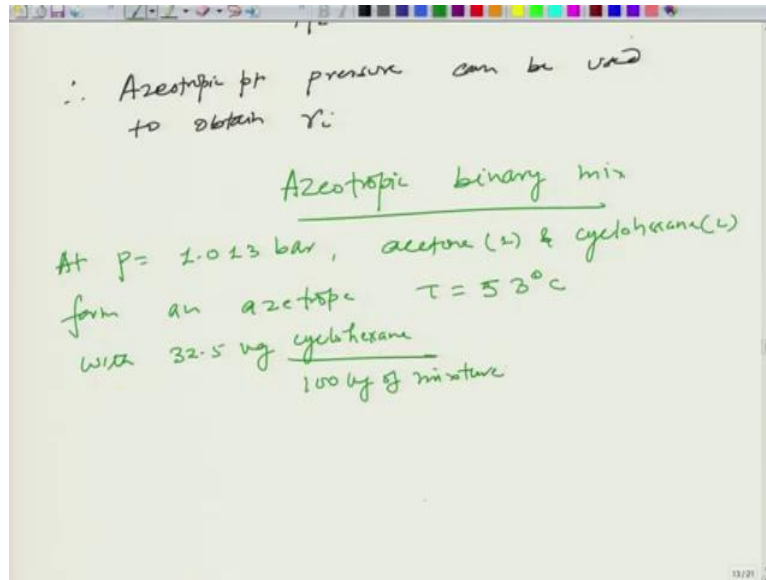 ∴ Azeotropic pt pressure can be used
to obtain γi
Azeotropic binary mix
At P = 1.013 bar, acetone (1) & cyclohexane (2)
form an azetrope T = 53°C
with 32.5 kg cyclohexane
100 kg of mixture
13/21